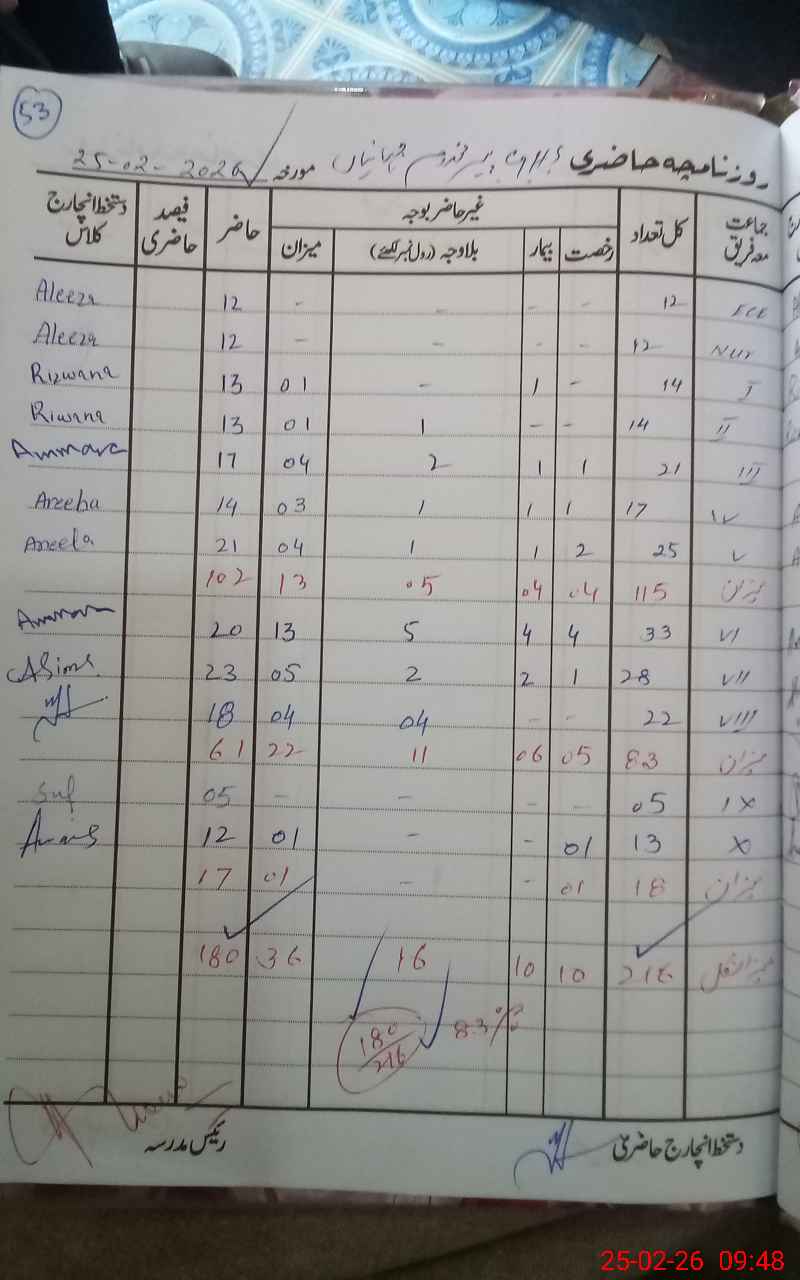 53
روزنامچہ حاضری مورخہ 25-02-2026
جماعت معہ فریق | کل تعداد | غیر حاضر بوجہ | حاضر | فیصد حاضری | دستخط انچارج کلاس
رخصت | بیمار | بلاوجہ (رول نمبر لکھئے) | میزان
ECE | 12 | - | - | - | - | 12 | Aleeza
Nur | 12 | - | - | - | - | 12 | Aleeza
I | 14 | - | 1 | - | 01 | 13 | Rizwana
II | 14 | - | - | 1 | 01 | 13 | Riwana
III | 21 | 1 | 1 | 2 | 04 | 17 | Ammara
IV | 17 | 1 | 1 | 1 | 03 | 14 | Areeba
V | 25 | 2 | 1 | 1 | 04 | 21 | Aneela
میزان | 115 | 04 | 04 | 05 | 13 | 102
VI | 33 | 4 | 4 | 5 | 13 | 20 | Ammara
VII | 28 | 1 | 2 | 2 | 05 | 23 | Asima
VIII | 22 | - | - | 04 | 04 | 18
میزان | 83 | 05 | 06 | 11 | 22 | 61
IX | 05 | - | - | - | - | 05
X | 13 | 01 | - | - | 01 | 12
میزان | 18 | 01 | - | - | 01 | 17
میزان کل | 216 | 10 | 10 | 16 | 36 | 180
180/216 83%
دستخط انچارج حاضری
رئیس مدرسہ
25-02-26 09:48